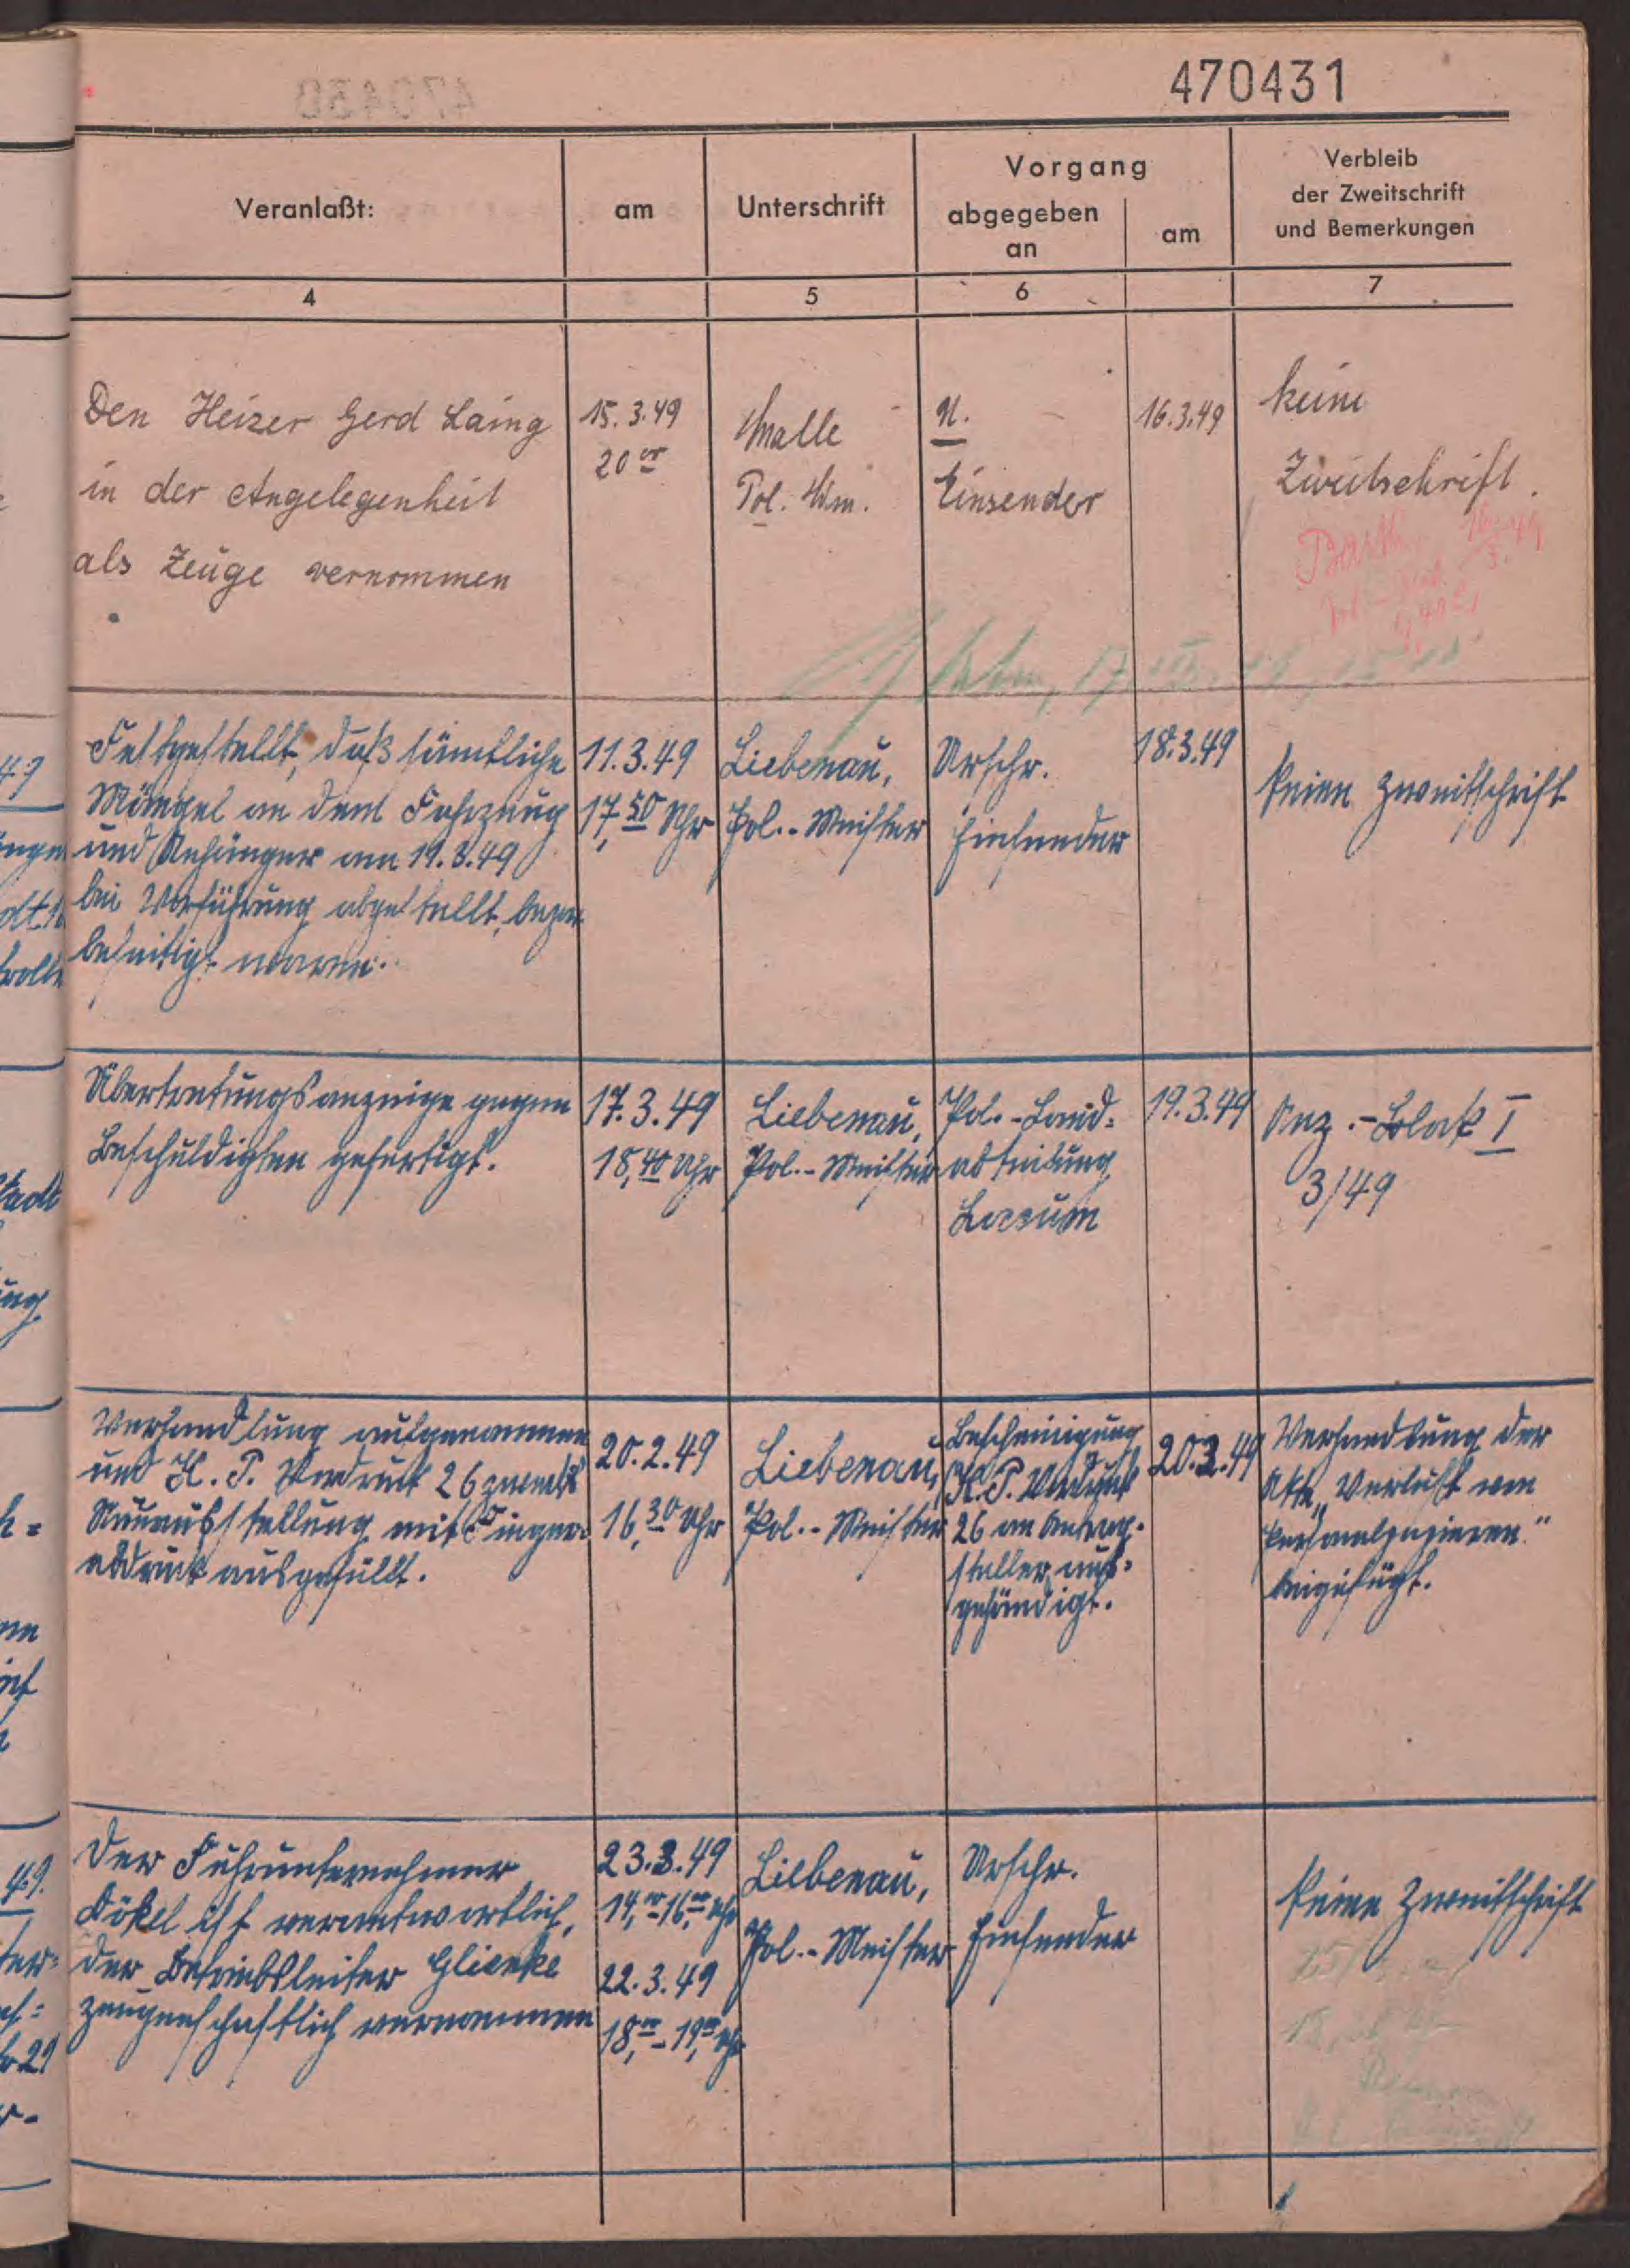 470431
Veranlaßt:
am
Unterschrift
Vorgang
abgegeben
an
am
Verbleib
der Zweitschrift
und Bemerkungen
4
5
6
7
Den Heizer Gerd Laing
in der Angelegenheit
als Zeuge vernommen
15.3.49
20 oo
Malle
Pol. Wm.
U.
Einsender
16.3.49
keine
Zweitschrift.
Festgestellt, daß sämtliche
Mängel an dem Fahrzeug
und Anhänger am 11.3.49
bei Vorführung abgestellt, bezw.
beseitigt waren.
11.3.49
17,50 Uhr
Liebenau,
Pol.-Meister
Urschr.
Einsender
18.3.49
keine Zweitschrift
Übertretungsanzeige gegen
Beschuldigten gefertigt.
17.3.49
18,40 Uhr
Liebenau,
Pol.-Meister
Pol.-Land-
abteilung
Loccum
19.3.49
Anz.-Block I
3/49
Verhandlung aufgenommen
und K.P. Vordruck 26 zwecks
Neuausstellung mit Finger-
abdruck ausgefüllt.
20.2.49
16,30 Uhr
Liebenau,
Pol.-Meister
Bescheinigung
K.P. Vordruck
26 an Antrag-
steller aus-
gehändigt.
20.3.49
Verhandlung der
Akte „Verlust von
Personalpapieren."
beigefügt.
Der Fuhrunternehmer
Dökel ist verantwortlich,
der Betriebsleiter Glienke
zeugenschaftlich vernommen
23.3.49
14,oo-16,oo Uhr
22.3.49
18,oo-19,oo Uhr
Liebenau,
Pol.-Meister
Urschr.
Einsender
keine Zweitschrift